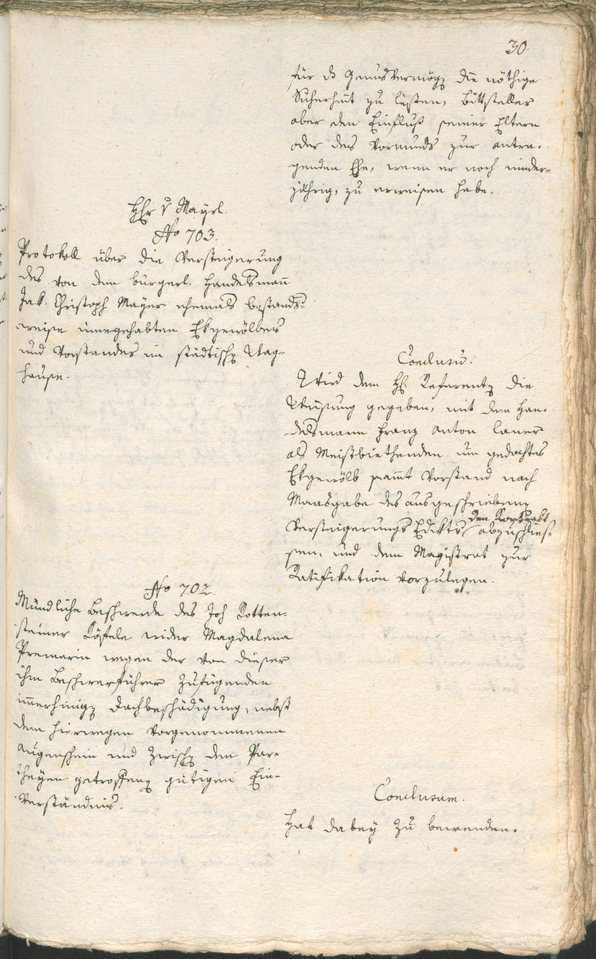 30.
für ds Heurathsvermög die nöthige
Sicherheit zu leisten, Bittsteller
aber den Einfluß seiner Eltern
oder des Vormunds zur antra-
genden Ehe, wenn er noch minder-
jährig, zu erweisen habe.
Hhr v Mayrl.
No 703.
Protokoll über die Versteigerung
des von dem bürgerl. Handelsmañ
Jak. Christoph Mayer ehemals bestands-
weise innegehabten Ekgewölbes
und Vorstandes im städtisch Wag-
hause.
Conclusū.
Wird dem H Referent die
Weisung gegeben, mit dem Han-
delsmann Franz Anton Laner
als Meistbiethenden um gedachtes
Ekgewölb sam̄t Vorstand nach
Maasgabe des ausgeschriebenen
Versteigerungs Edikts den Kontrakt abzuschlies-
sen, und dem Magistrat zur
Ratifikation vorzulegen.
No 702.
Mündliche Beschwerde des Joh Rotten-
steiner Köfele wider Magdalena
Premerin wegen der von dieser
ihm Beschwerführer zufügenden
im̄erhing Dachbeschädigung, nebst
dem hierwegen vorgenommenen
Augenschein und zwisch den Par-
theyen getroffene gütigen Ein-
verständnis.
Conclusum.
Hat dabey zu bewenden.